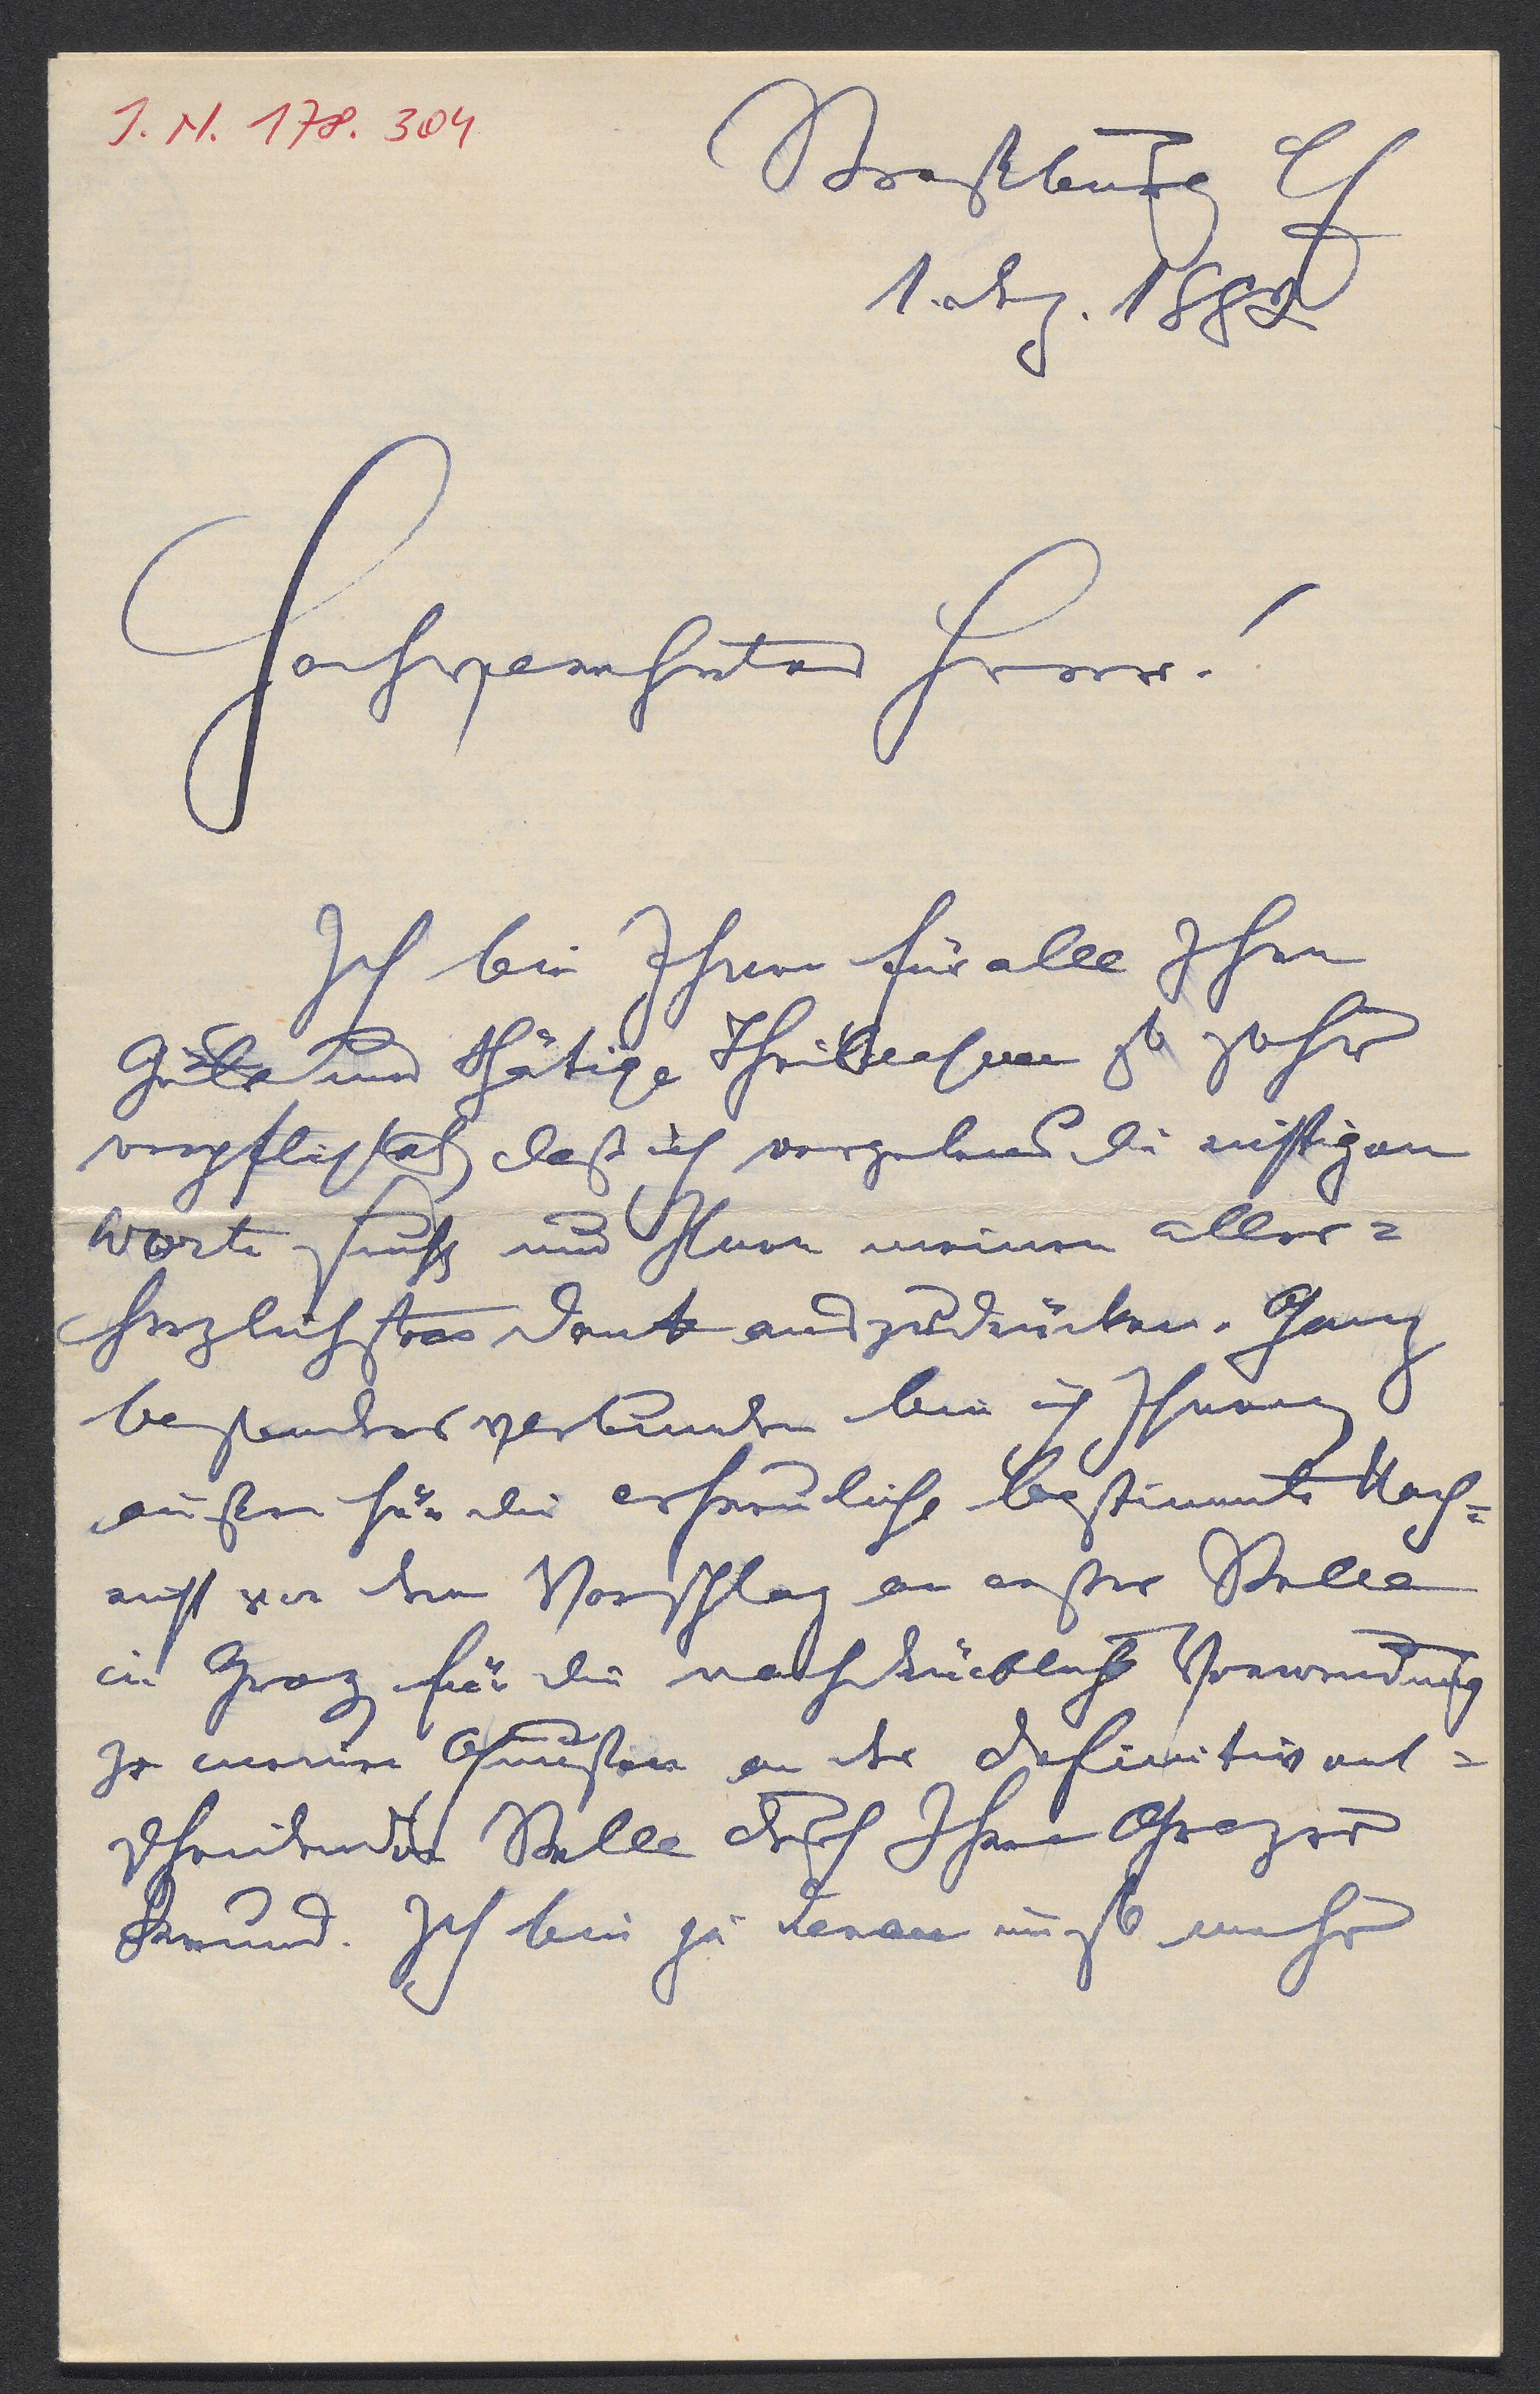 I. N. 178. 304
Straßburg Els
1. Dez. 1882
Hochverehrter Herr!
Ich bin Ihnen für alle Ihre
Güte und thätige Theilnahme so sehr
verpflichtet, daß ich vergebens die richtigen
Worte suche und Ihnen meinen aller=
herzlichsten Dank auszudrücken. Ganz
besonders verbunden bin ich Ihnen
außer für die erfreuliche bestimmte Nach=
richt von dem Vorschlag an erster Stelle
in Graz für die nachdrückliche Verwendung
zu meinen Gunsten an der definitiv ent=
scheidenden Stelle durch Ihren Grazer
Freund. Ich bin ja daran nicht mehr